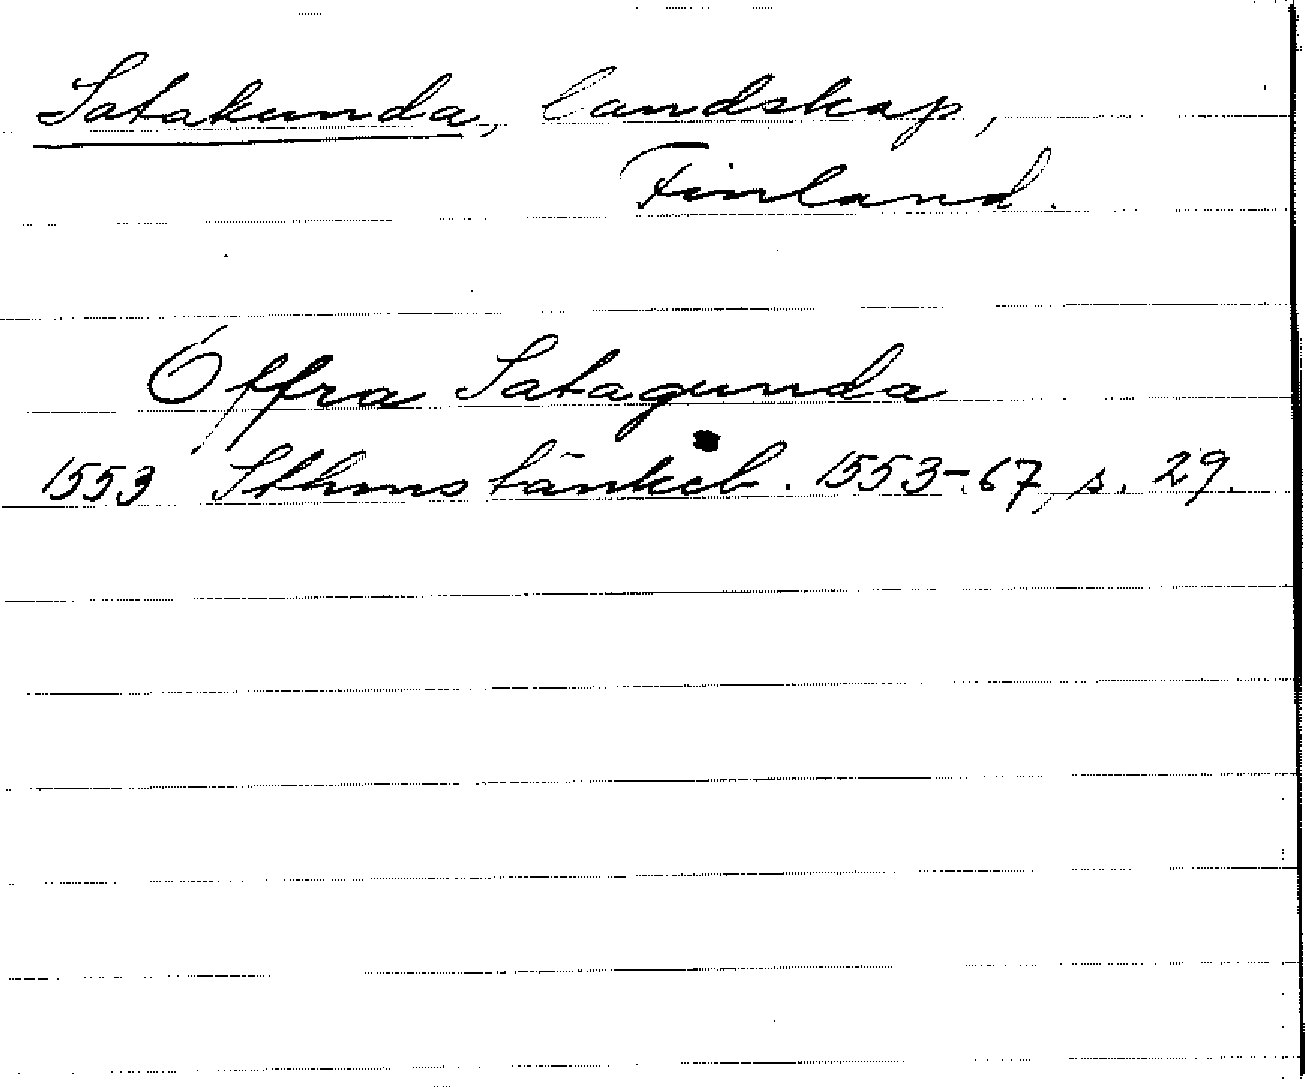 Satakunda, landskap,
Finland.
Óffra Satagunda
1553 Sthms tänkeb. 1553-67, s. 29.